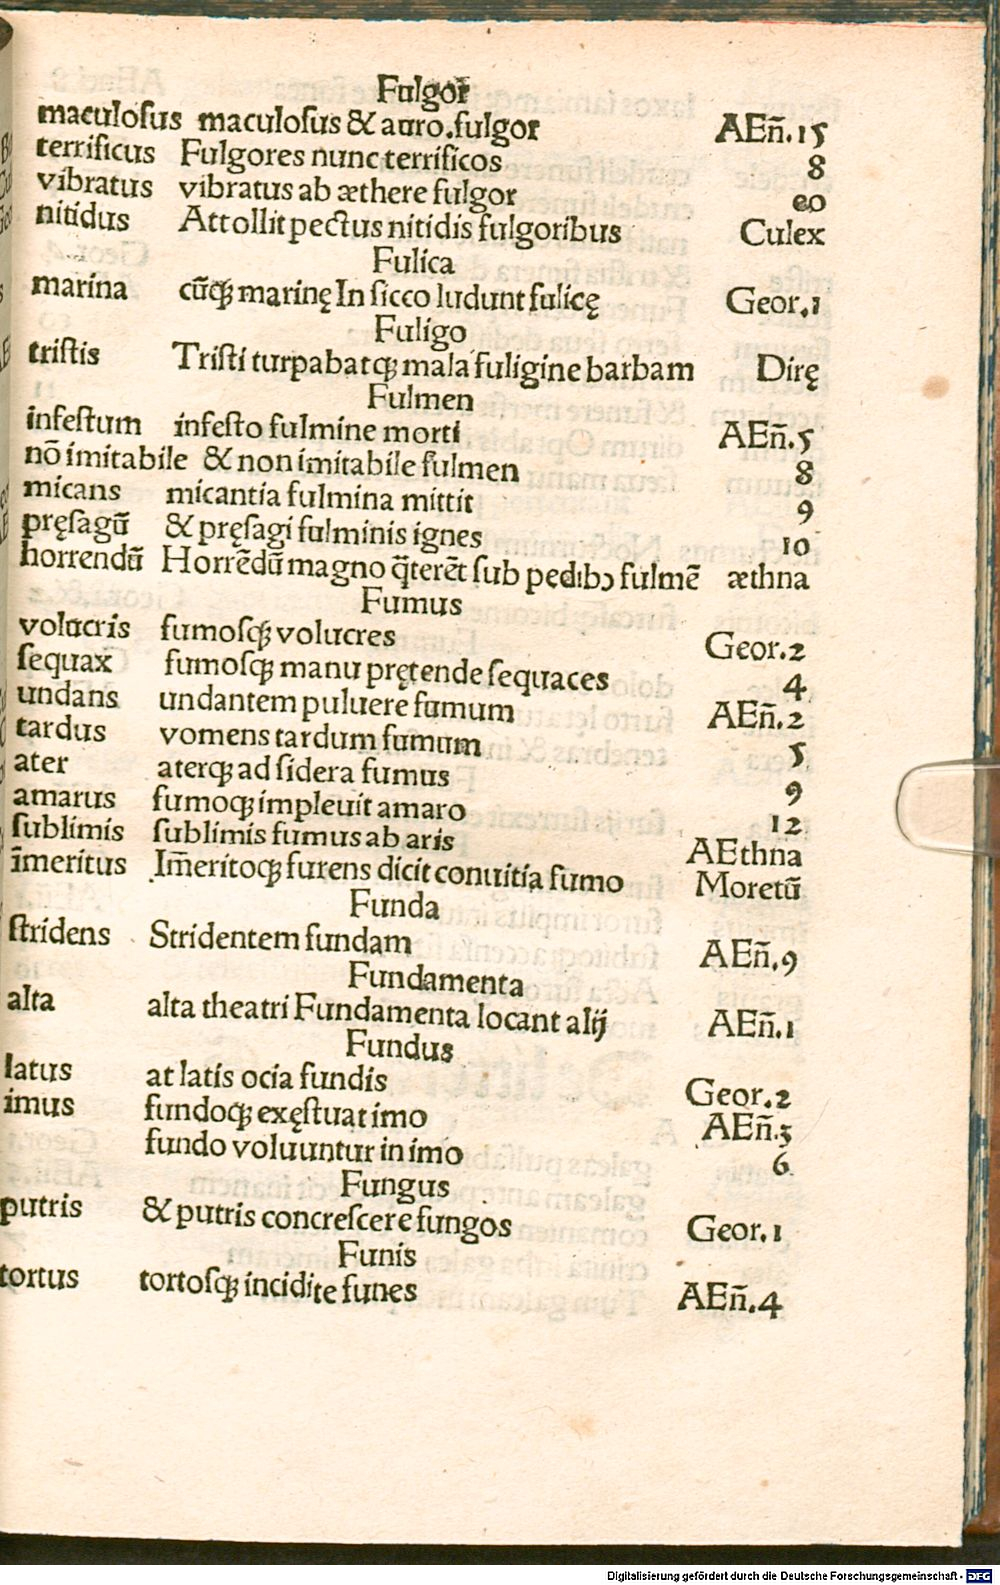 Fulgor
maculosus maculosus & auro.fulgor AEn̄.15
terrificus Fulgores nunc terrificos 8
vibratus vibratus ab æthere fulgor eo
nitidus Attollit pectus nitidis fulgoribus Culex
Fulica
marina cūq; marinę In sicco ludunt fulicę Geor.1
Fuligo
tristis Tristi turpabatq; mala fuligine barbam Dirę
Fulmen
infestum infesto fulmine morti AEn̄.5
nō imitabile & non imitabile fulmen 8
micans micantia fulmina mittit 9
pręsagū & pręsagi fulminis ignes 10
horrendū Horrēdū magno q̄terēt sub pedibꝰ fulmē æthna
Fumus
volucris fumosq; volucres Geor.2
sequax fumosq; manu prętende sequaces 4
undans undantem puluere fumum AEn̄.2
tardus vomens tardum fumum 5
ater aterq; ad sidera fumus 9
amarus fumoq; impleuit amaro 12
sublimis sublimis fumus ab aris AEthna
īmeritus Im̄eritoq; furens dicit conuitia fumo Moretū
Funda
stridens Stridentem fundam AEn̄.9
Fundamenta
alta alta theatri Fundamenta locant alij AEn̄.1
Fundus
latus at latis ocia fundis Geor.2
imus fundoq; exęstuat imo AEn̄.3
fundo voluuntur in imo 6
Fungus
putris & putris concrescere fungos Geor.1
Funis
tortus tortosq; incidite funes AEn̄.4
Digitalisierung gefördert durch die Deutsche Forschungsgemeinschaft - DFG